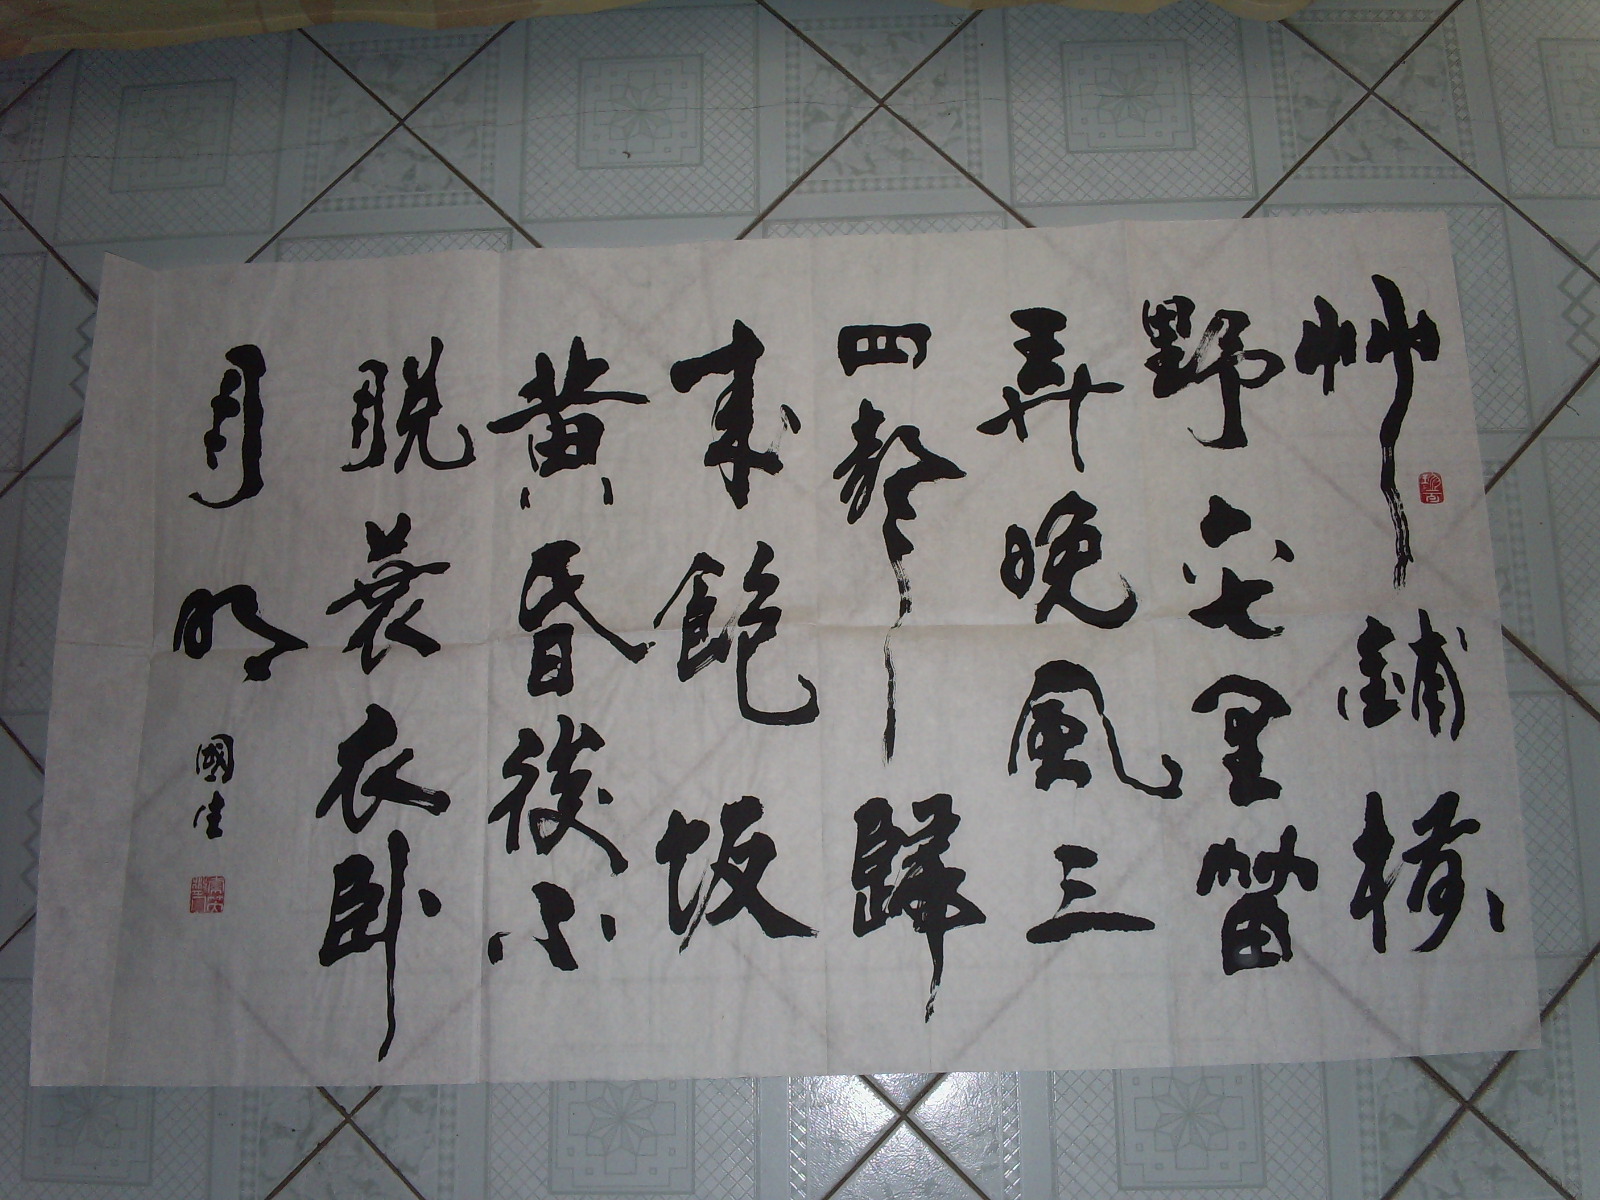 艸鋪横
野六七里笛
弄晚風三
四聲歸
来飽飯
黄昏後不
脱蓑衣卧
月明
國